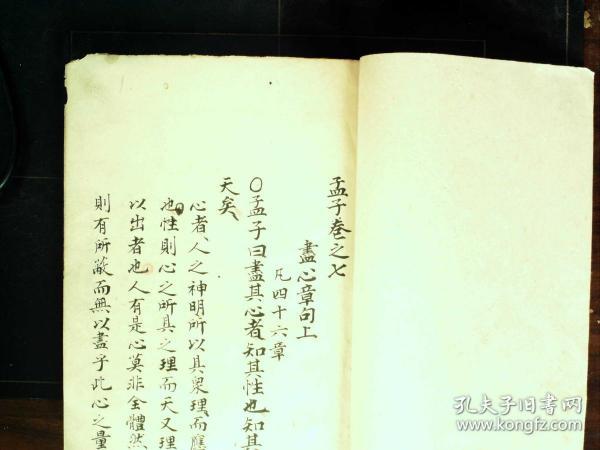 孟子卷之七
盡心章句上
凡四十六章
〇孟子曰盡其心者知其性也知其
天矣
心者人之神明所以具衆理而應
也性則心之所具之理而天又理
以出者也人有是心莫非全體然
則有所蔽而無以盡乎此心之量
孔夫子旧书网
www.kongfz.com